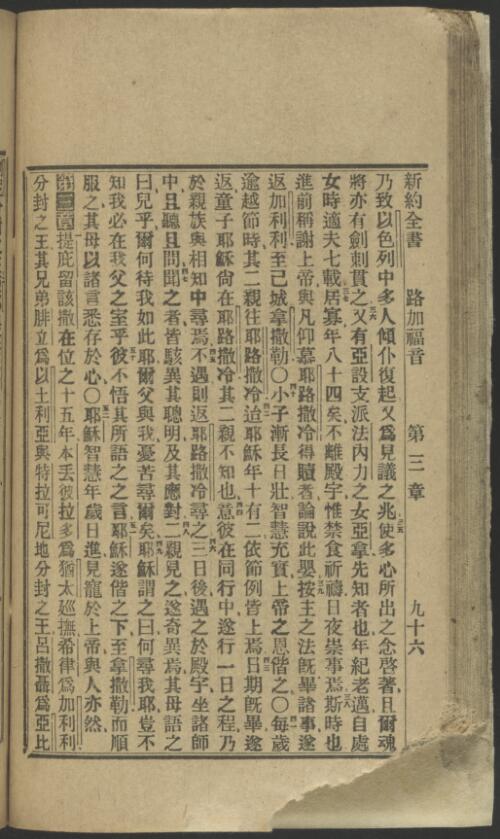 新約全書　路加福音　第三章　九十六
乃致以色列中多人傾仆復起又爲見議之兆使多心所出之念啓著且爾魂
將亦有劍刺貫之三六又有亞設支派法內力之女亞拿先知者也年紀老邁自處
女時適夫七載三七居寡年八十四矣不離殿宇惟禁食祈禱日夜崇事焉三八斯時也
進前稱謝上帝與凡仰慕耶路撒冷得贖者論說此嬰三九按主之法既畢諸事遂
返加利利至己城拿撒勒〇四十小子漸長日壯智慧充實上帝之恩偕之〇四一每歲
逾越節時其二親往耶路撒冷四二迨耶穌年十有二依節例皆上焉四三日期既畢遂
返童子耶穌尙在耶路撒冷其二親不知也四四意彼在同行中遂行一日之程乃
於親族與相知中尋焉四五不遇則返耶路撒冷尋之四六三日後遇之於殿宇坐諸師
中且聽且問四七聞之者皆駭異其聰明及其應對四八二親見之遂奇異焉其母語之
曰兒乎爾何待我如此耶爾父與我憂苦尋爾矣四九耶穌謂之曰何尋我耶豈不
知我必在我父之室乎五十彼不悟其所語之之言五一耶穌遂偕之下至拿撒勒而順
服之其母以諸言悉存於心〇五二耶穌智慧年歲日進見寵於上帝與人亦然
第三章一提庇留該撒在位之十五年本丟彼拉多爲猶太巡撫希律爲加利利
分封之王其兄弟腓立爲以土利亞與特拉可尼地分封之王呂撒聶爲亞比